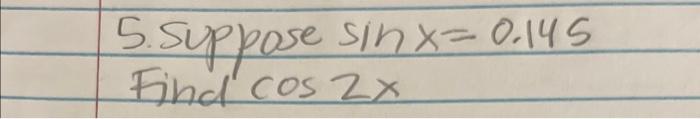 5. Suppose sin x = 0.145
Find cos 2x